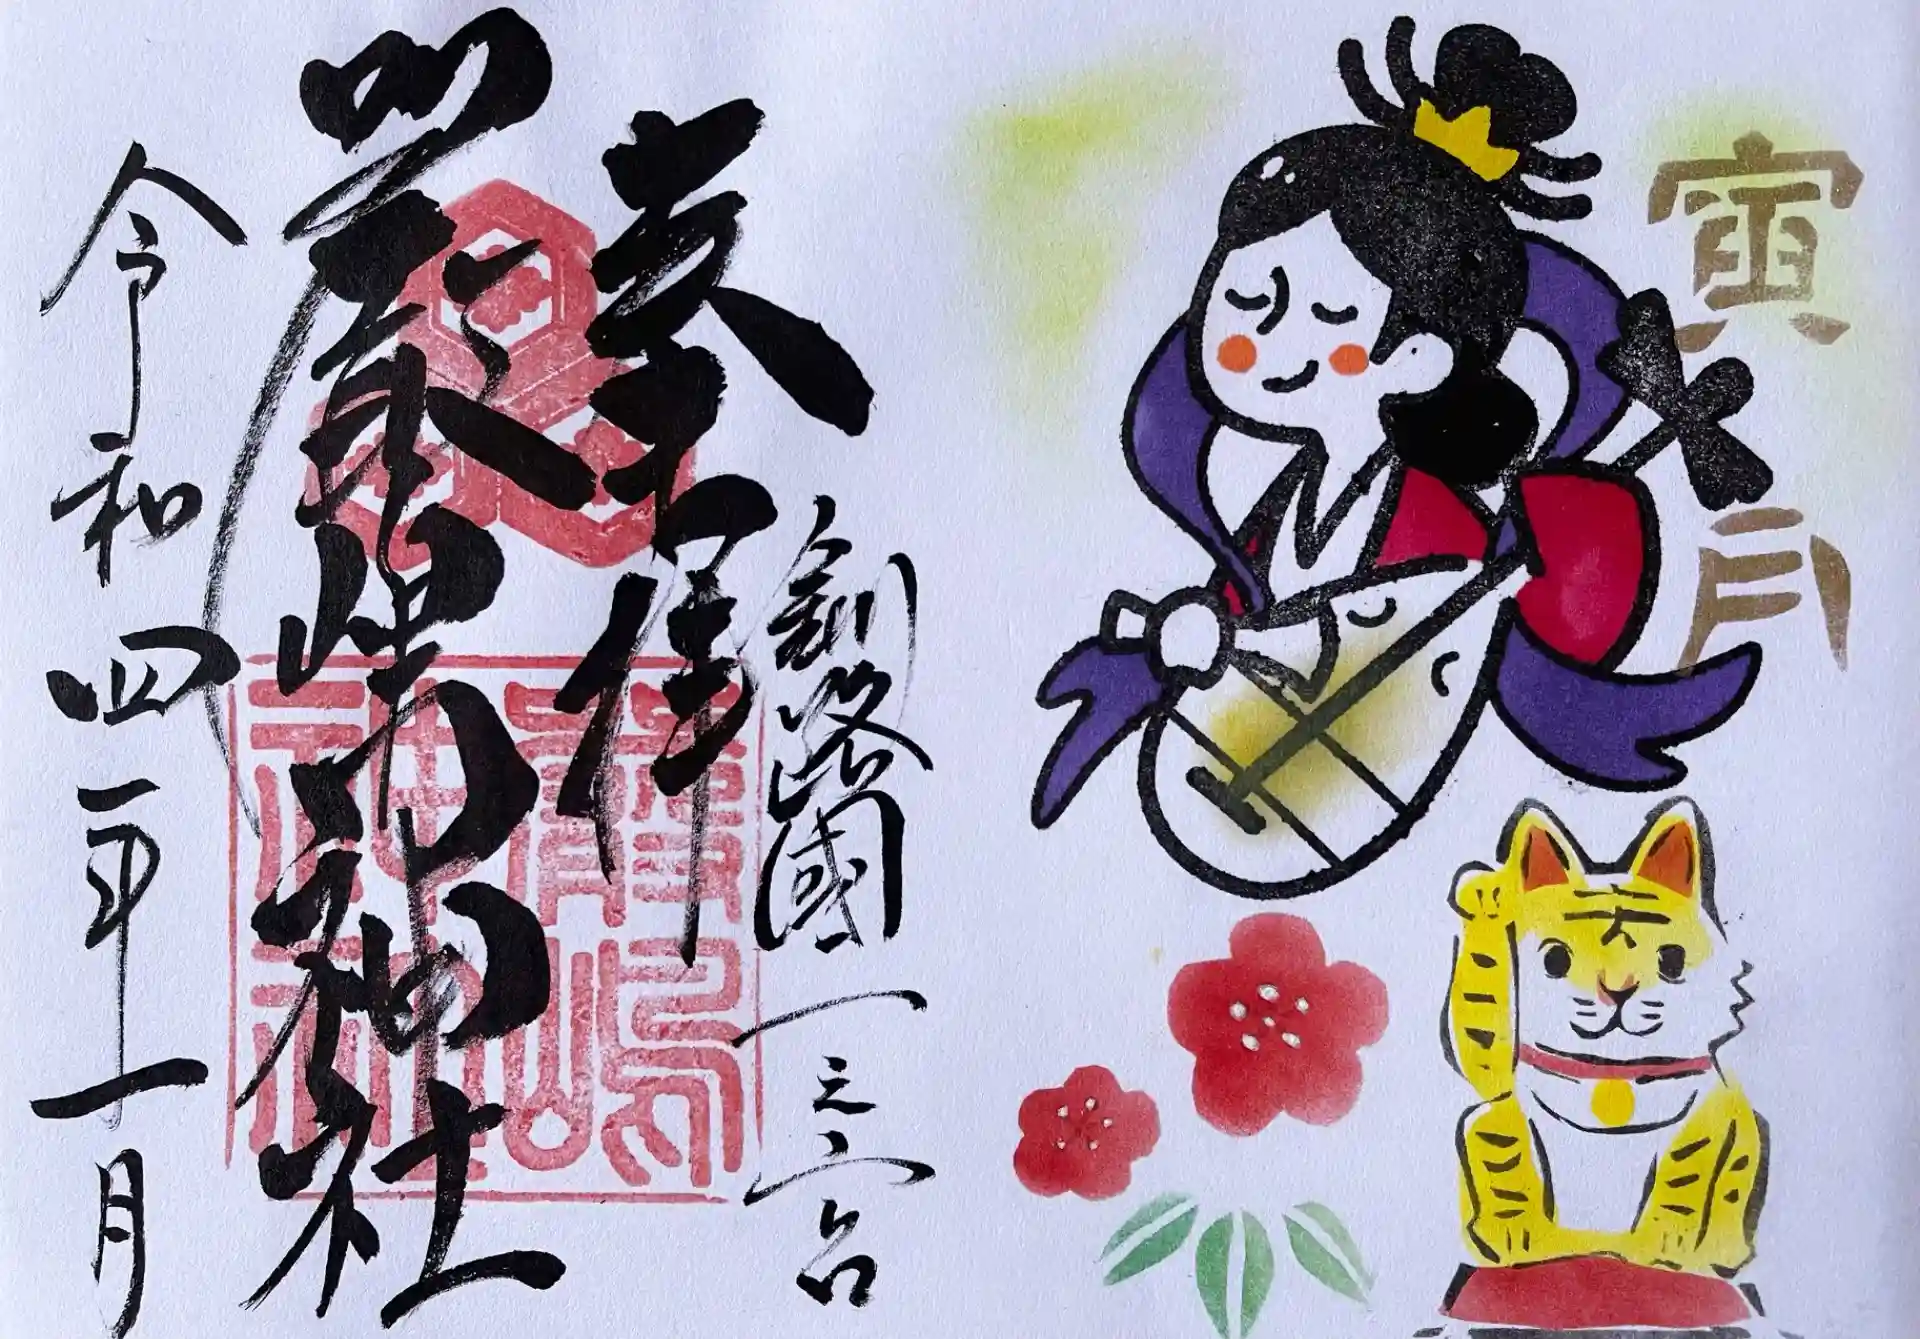 寅月
奉拝
釧路國一之宮
嚴嶋神社
嚴嶋神社
令和四年一月